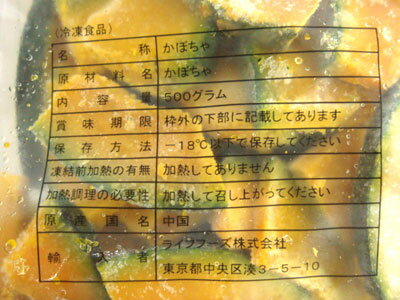 (冷凍食品)
名称 かぼちゃ
原材料名 かぼちゃ
内容量 500グラム
賞味期限 枠外の下部に記載してあります
保存方法 －18℃以下で保存してください
凍結前加熱の有無 加熱してありません
加熱調理の必要性 加熱して召し上がってください
原産国名 中国
輸入者 ライフフーズ株式会社
東京都中央区湊3－5－10